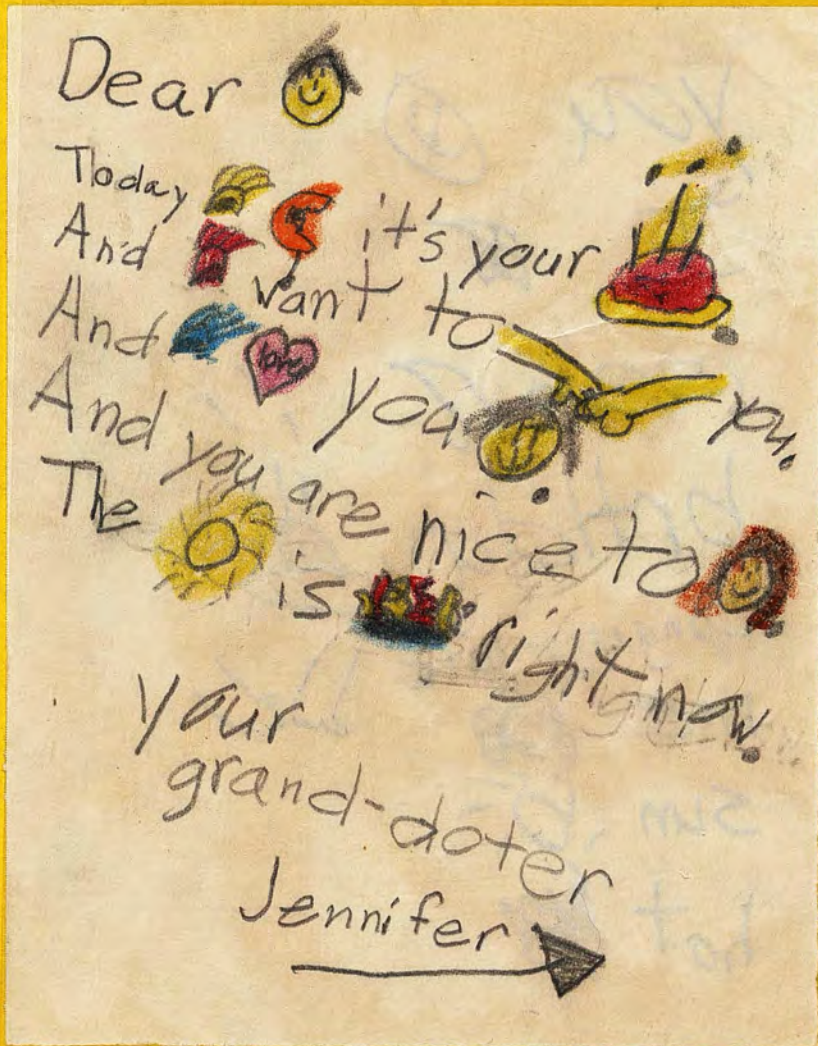 Dear
Today it's your.
And want to you.
And love you.
And you are nice to.
The is right now.
Your
grand-doter
Jennifer